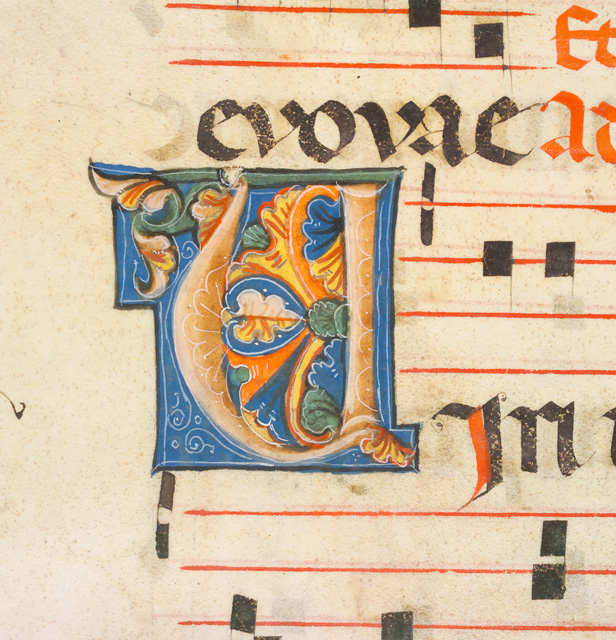 Et
evovae Ad
U Im